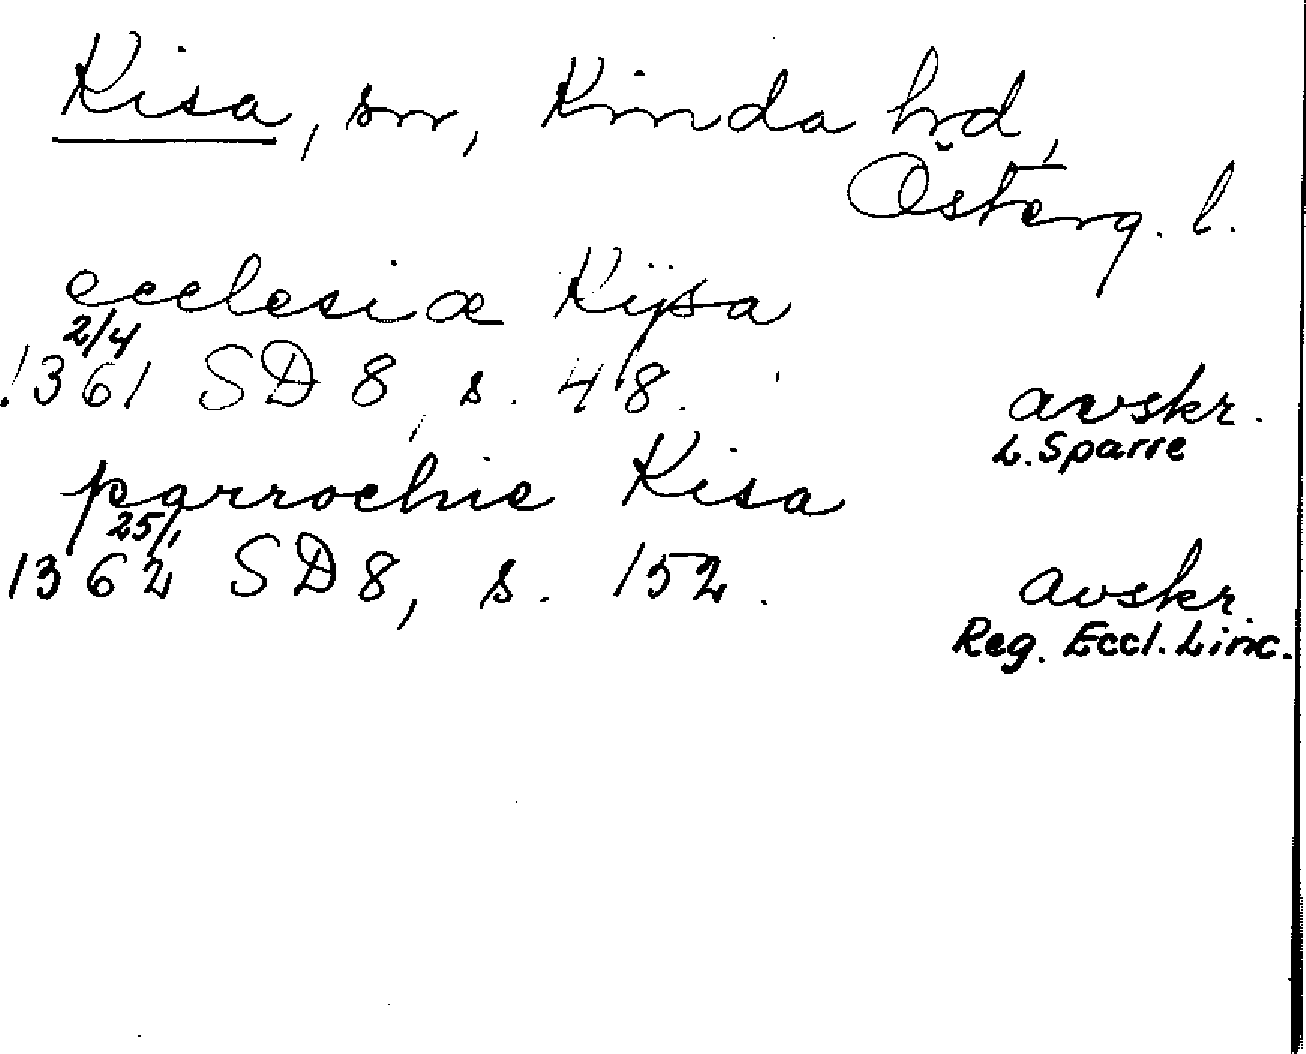 Kisa, sn, Kinda hd,
Österg. l.
ecclesiæ Kijsa
2/4
1361 SD 8, s. 48.
avskr.
L. Sparre
parrochie Kisa
25/1
1362 SD 8, s. 152.
avskr.
Reg. Eccl. Linc.